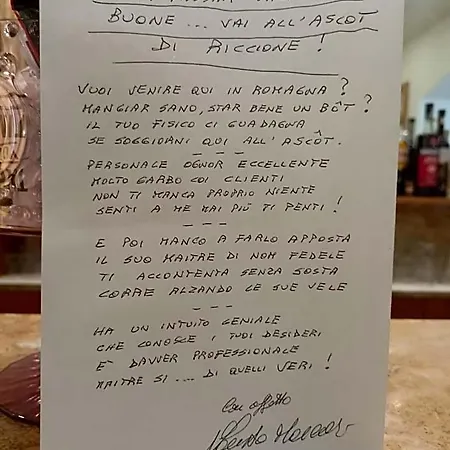 BUONE... VAI ALL'ASCOT
DI RICCIONE!
VUOI VENIRE QUI IN ROMAGNA?
MANGIAR SANO, STAR BENE UN BÔT?
IL TUO FISICO CI GUADAGNA
SE SOGGIORNI QUI ALL'ASCÔT.
- - -
PERSONALE OGNOR ECCELLENTE
MOLTO GARBO COI CLIENTI
NON TI MANCA PROPRIO NIENTE
SENTI A ME MAI PIÙ TI PENTI!
- - -
E POI MANCO A FARLO APPOSTA
IL SUO MAITRE DI NOM FEDELE
TI ACCONTENTA SENZA SOSTA
CORRE ALZANDO LE SUE VELE
- - -
HA UN INTUITO GENIALE
CHE CONOSCE I TUOI DESIDERI
E' DAVVER PROFESSIONALE
MAITRE SI.... DI QUELLI VERI!
Con affetto